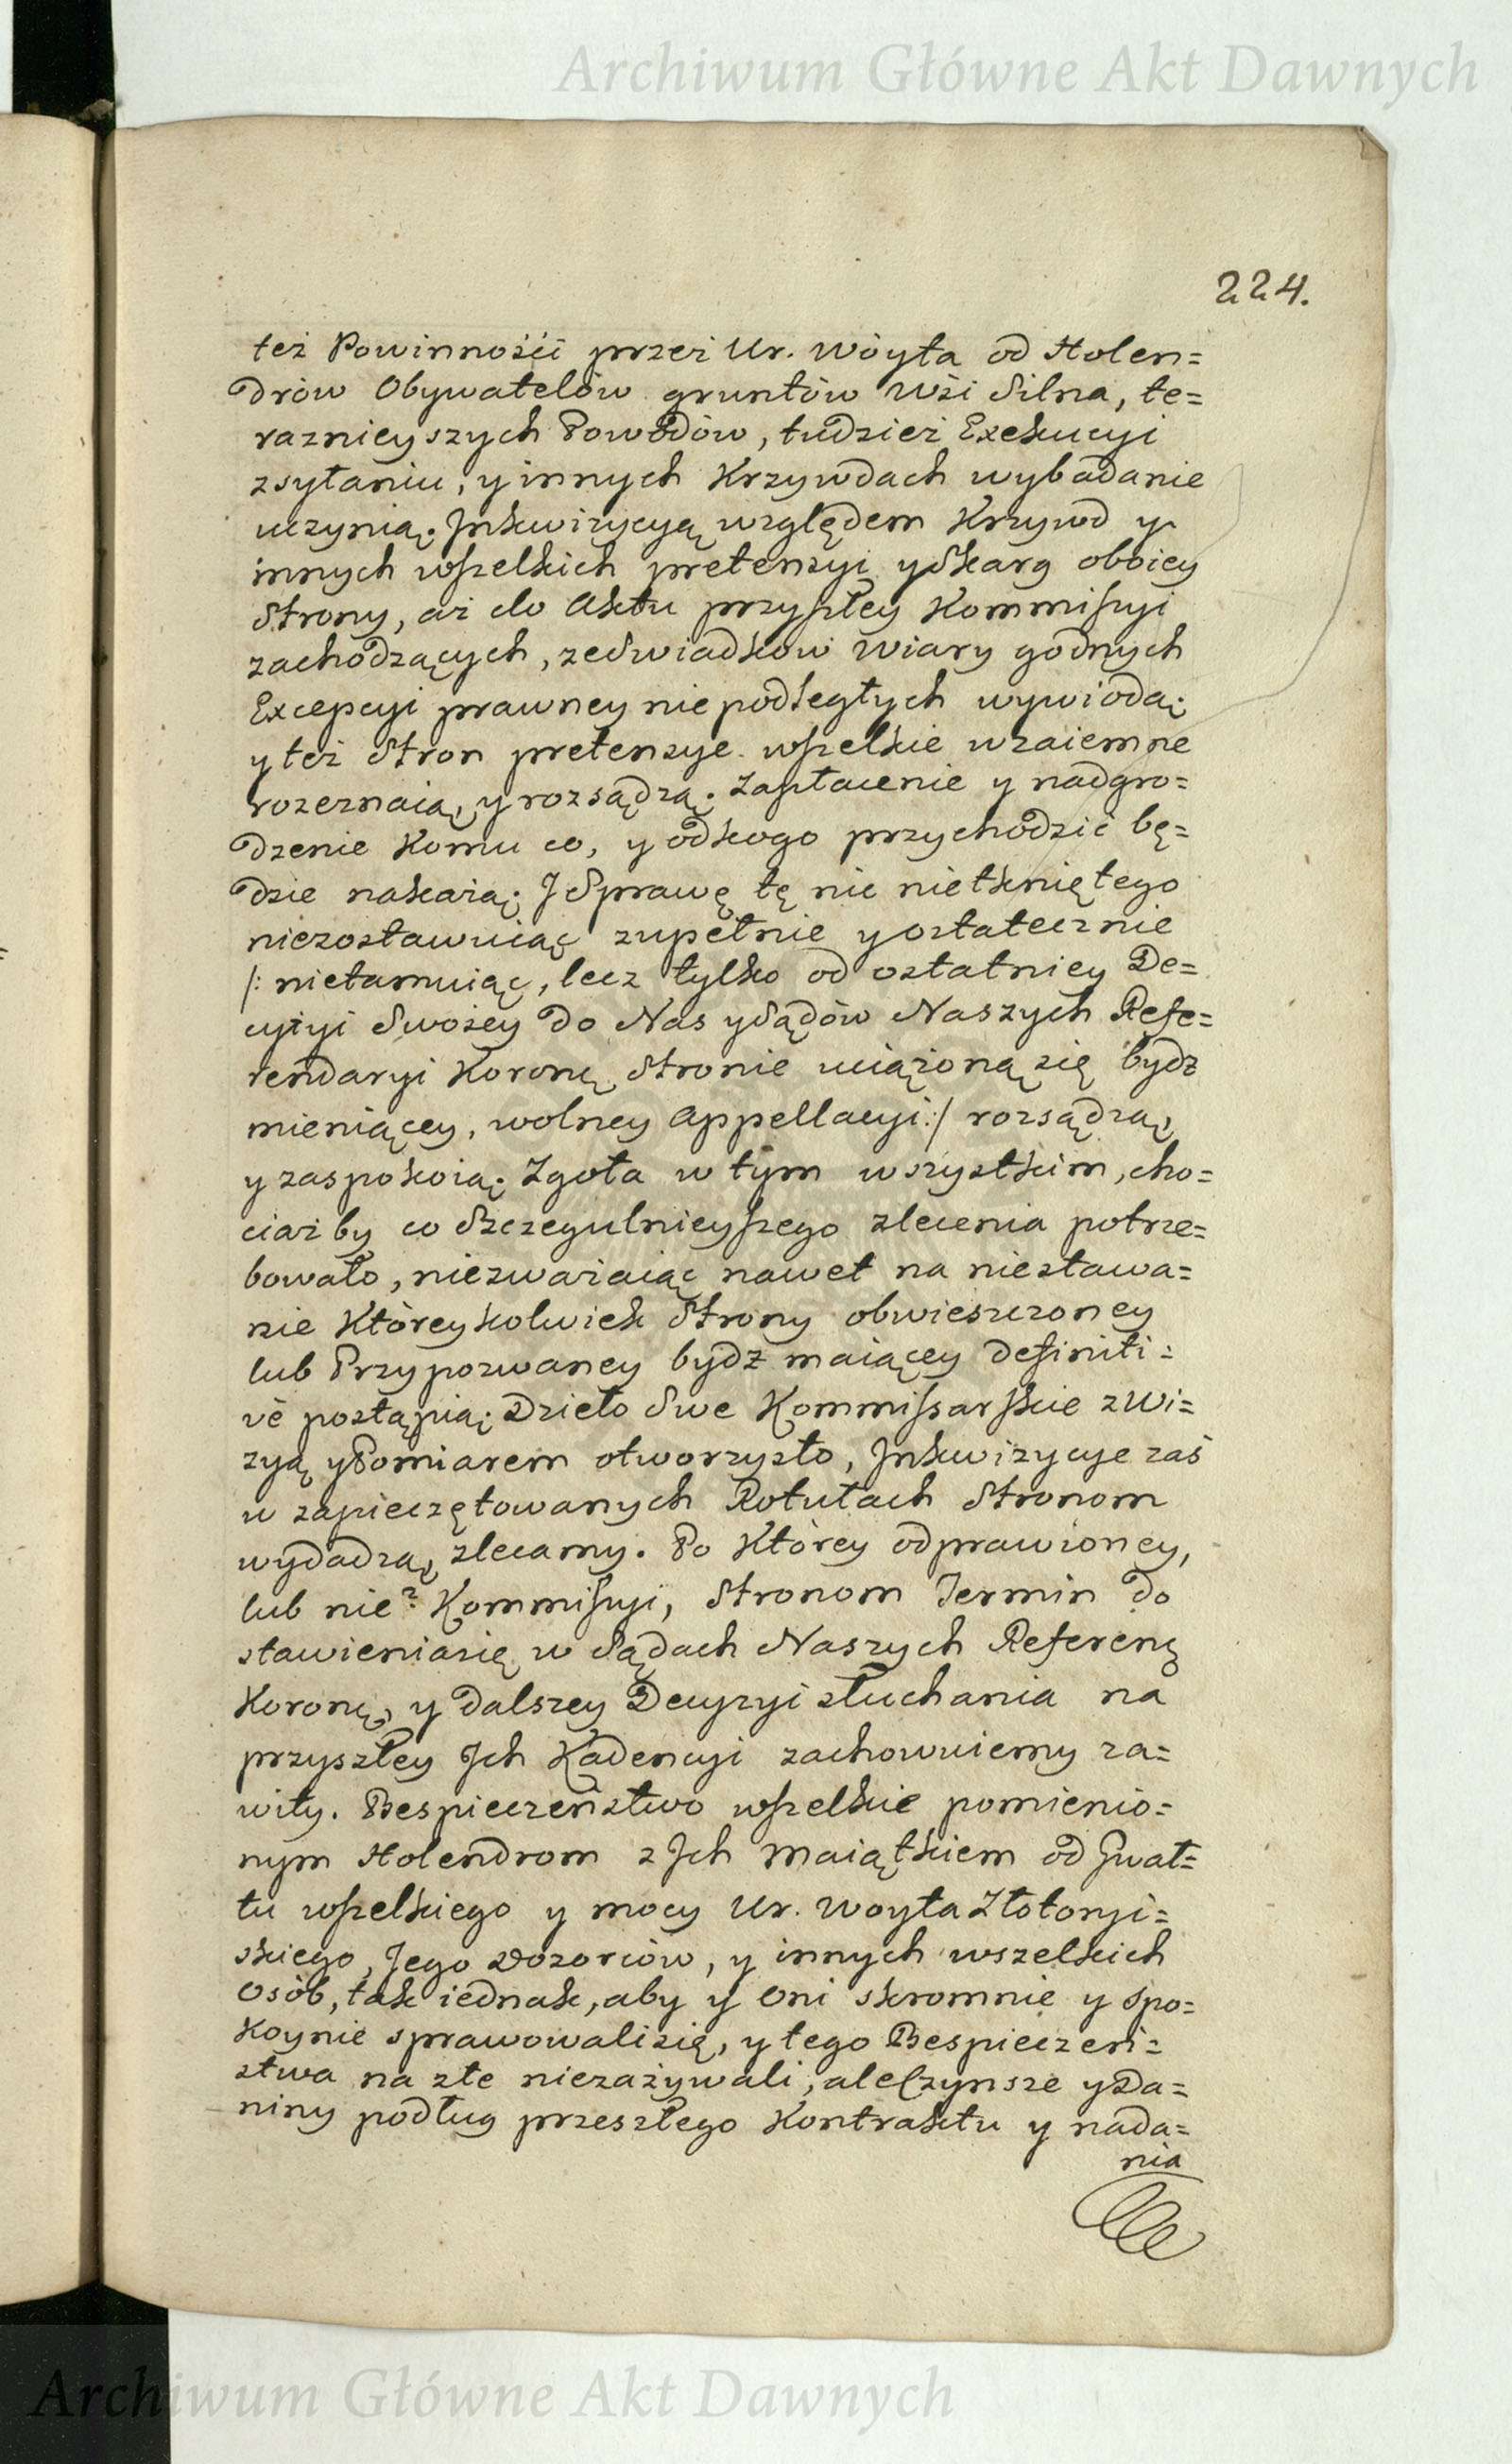 Archiwum Główne Akt Dawnych
224.
też Powinnośći przez Ur. Wóyta od Holen=
drów Obywatelów gruntów Wśi Silna, te=
raznieyszych Powodów, tudzież Exekucyi
zsyłaniu, y innych Krzywdach wybadanie
uczynią. Inkwizycyą względem Krzywd y
innych wszelkich pretensyi y Skarg oboiey
Strony, aż do Aktu przyszłey Kommissyi
zachodzących, ze Swiadkow wiary godnych
Excepcyi prawney nie podległych wywiodą;
y też Stron pretensye wszelkie wzaiemne
rozeznaią, y rozsądzą. Zapłacenie y nadgro=
dzenie Komu co, y od kogo przychodzić bę=
dzie nakażą; I Sprawę tę nic nietkniętego
niezostawuiąc zupełnie y ostatecznie
/: nietamuiąc, lecz tylko od ostatniey De=
cyzyi Swoiey do Nas y Sądów Naszych Refe=
rendaryi Koronę Stronie uciążoną się bydz
mieniącey, wolney Appellacyi :/ rozsądzą,
y zaspokoią; Zgoła w tym wszystkim, cho=
ciaż by co Szczegulnieyszego zlecenia potrze=
bowało, niezważaiąc nawet na niestawa=
nie Któreykolwiek Strony obwieszczoney
lub Przypozwaney bydź maiącey definiti=
vè postąpią; Dzieło Swe Kommissarskie z Wi=
zyą y Pomiarem otworzysto, Inkwizycye zaś
w zapieczętowanych Rotułach Stronom
wydadzą, zlecamy. Po Którey odprawioney,
lub nie? Kommissyi, Stronom Termin do
stawienia się w Sądach Naszych Referenę
Koronę, y dalszey Decyzyi słuchania na
przyszłey Ich Kadencyi zachowuiemy za=
wity. Bespieczeństwo wszelkie pomienio=
nym Holendrom z Ich Maiątkiem od Gwał=
tu wszelkiego y mocy Ur. Woyta Złotoryi=
skiego, Jego Dozorców, y innych wszelkich
Osób, tak iednak, aby y Oni skromnie y spo=
koynie sprawowali się, y tego Bespieczeń=
stwa na złe niezażywali, ale Czynsze y Da=
niny podług przeszłego Kontraktu y nada=
nia
Archiwum Główne Akt Dawnych